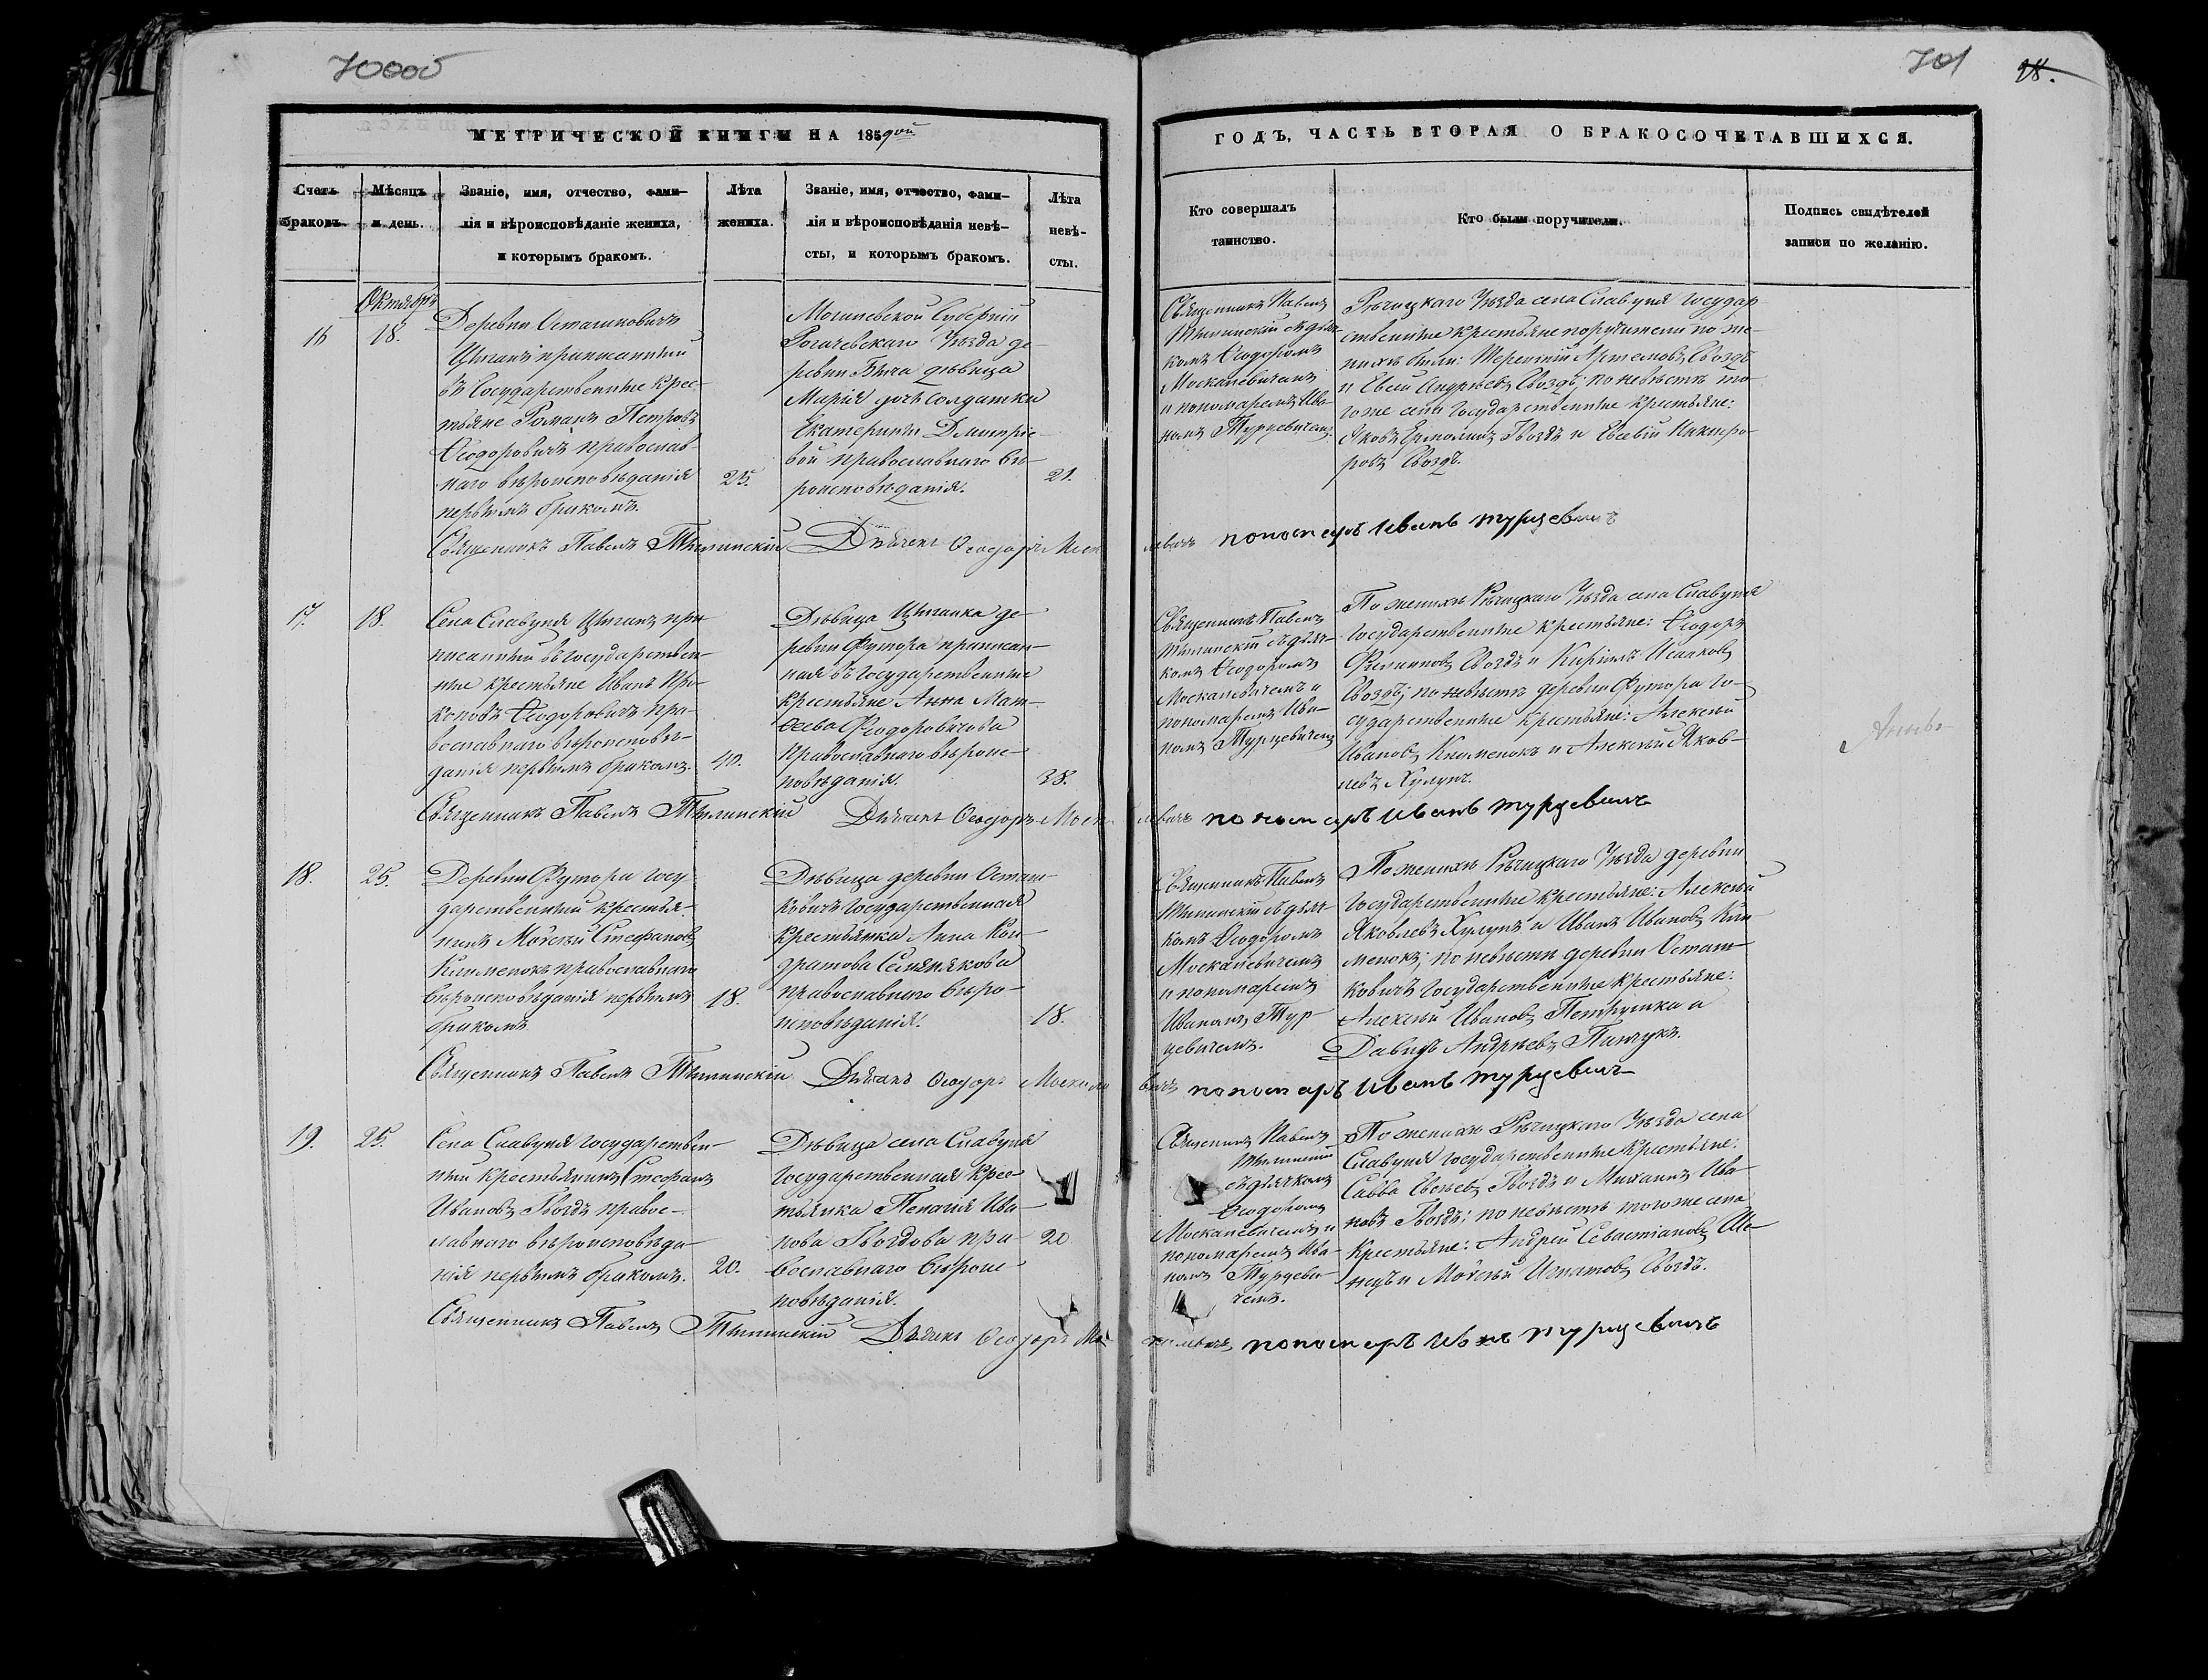 700об
701
28.
МЕТРИЧЕСКОЙ КНИГИ НА 1859 дой
ГОДЪ, ЧАСТЬ ВТОРАЯ О БРАКОСОЧЕТАВШИХСЯ.
Счетъ
браковъ.
Мѣсяцъ
и день.
Званіе, имя, отчество, фами-
лія и вѣроисповѣданіе жениха,
и которымъ бракомъ.
Лѣта
жениха.
Званіе, имя, отчество, фами-
лія и вѣроисповѣданія невѣ-
сты, и которымъ бракомъ.
Лѣта
невѣ-
сты.
Кто совершалъ
таинство.
Кто были поручители.
Подпись свидѣтелей
записи по желанію.
16
Октябрь
18.
Деревни Осташковичь
Цыганъ приписанный
въ Государственные крес-
тьяне Романъ Петровъ
Ѳеодоровичъ православ-
наго вѣроисповѣданія
первымъ бракомъ.
25.
Могилевской Губерніи
Рогачевскаго Уѣзда де-
ревни Бѣча дѣвица
Марія дочь солдатки
Екатерины Дмитріе-
вой православнаго вѣ-
роисповѣданія.
21.
Священникъ Павелъ
съ дьяч-
комъ Ѳеодоромъ
Москалевичемъ
и пономаремъ Ива-
номъ Турцевичемъ.
Рѣчицкаго Уѣзда села Славуня Государ-
ственные крестьяне поручители по же-
нихѣ были: Терентій Артемовъ Гвоздъ
и Евсей Андреевъ Гвоздъ; по невѣстѣ то-
гоже села Государственные крестьяне:
Яковъ Ермолинъ Гвоздъ и Евсевій Никифо-
ровъ Гвоздъ.
Священникъ Павелъ Дьячекъ Ѳеодоръ Москалевичъ пономарь Иванъ Турцевичъ
17.
18.
Села Славуня Цыганъ при-
писанный въ Государствен-
ные крестьяне Иванъ Про-
коповъ Ѳеодоровичъ пра-
вославнаго вѣроисповѣ-
данія первымъ бракомъ.
40.
Дѣвица Цыганка де-
ревни Футора приписан-
ная въ Государственные
крестьяне Анна Мат-
ѳеева Ѳеодоровичова
Православнаго вѣроис-
повѣданія.
38.
Священникъ Павелъ
съ дьяч-
комъ Ѳеодоромъ
Москалевичемъ и
пономаремъ Ива-
номъ Турцевичемъ
По женихѣ Рѣчицкаго Уѣзда села Славуня
Государственные крестьяне: Ѳеодоръ
Филиповъ Гвоздъ и Кирилъ Исааковъ
Гвоздъ; по невѣстѣ деревни Футора Го-
сударственные крестьяне: Алексѣй
Ивановъ Клименокъ и Алексѣй Яков-
левъ Хулупъ.
Священникъ Павелъ Дьячекъ Ѳеодоръ Москалевичъ пономарь Иванъ Турцевичъ
18.
25.
Деревни Футора Госу-
дарственный крестья-
нинъ Моѵсѣй Стефановъ
Клименокъ православнаго
вѣроисповѣданія первымъ
бракомъ
18.
Дѣвица деревни Осташ-
ковичъ Государственная
крестьянка Анна Кон-
дратова
православнаго вѣро-
исповѣданія.
18.
Священникъ Павелъ
съ дьяч-
комъ Ѳеодоромъ
Москалевичемъ
и пономаремъ
Иваномъ Тур-
цевичемъ.
По женихѣ Рѣчицкаго Уѣзда деревни
Государственные крестьяне: Алексѣй
Яковлевъ Хулупъ и Иванъ Ивановъ Кли-
менокъ; по невѣстѣ деревни Осташ-
ковичъ Государственные крестьяне:
Алексѣй Ивановъ Петрушка и
Давидъ Андреевъ Панчукъ.
Священникъ Павелъ Дьячекъ Ѳеодоръ Москалевичъ пономарь Иванъ Турцевичъ
19.
25.
Села Славуня Государствен-
ный крестьянинъ Стефанъ
Ивановъ Гвоздъ правос-
лавнаго вѣроисповѣда-
нія первымъ бракомъ.
20.
Дѣвица села Славуня
Государственная крес-
тьянка Пелагія Ива-
нова Гвоздова пра-
вославнаго вѣроис-
повѣданія.
20
Священникъ Павелъ
съ дьячкомъ
Ѳеодоромъ
Москалевичемъ и
пономаремъ Ива-
номъ Турцеви-
чемъ.
По женихѣ Рѣчицкаго Уѣзда села
Славуня Государственные крестьяне:
Савва Евсеевъ Гвоздъ и Михаилъ Ива-
новъ Гвоздъ; по невѣстѣ тогоже села
крестьяне: Андрей Севастіановъ
и Моѵсѣй Игнатовъ Гвоздъ.
Священникъ Павелъ Дьячекъ Ѳеодоръ Москалевичъ пономарь Иванъ Турцевичъ